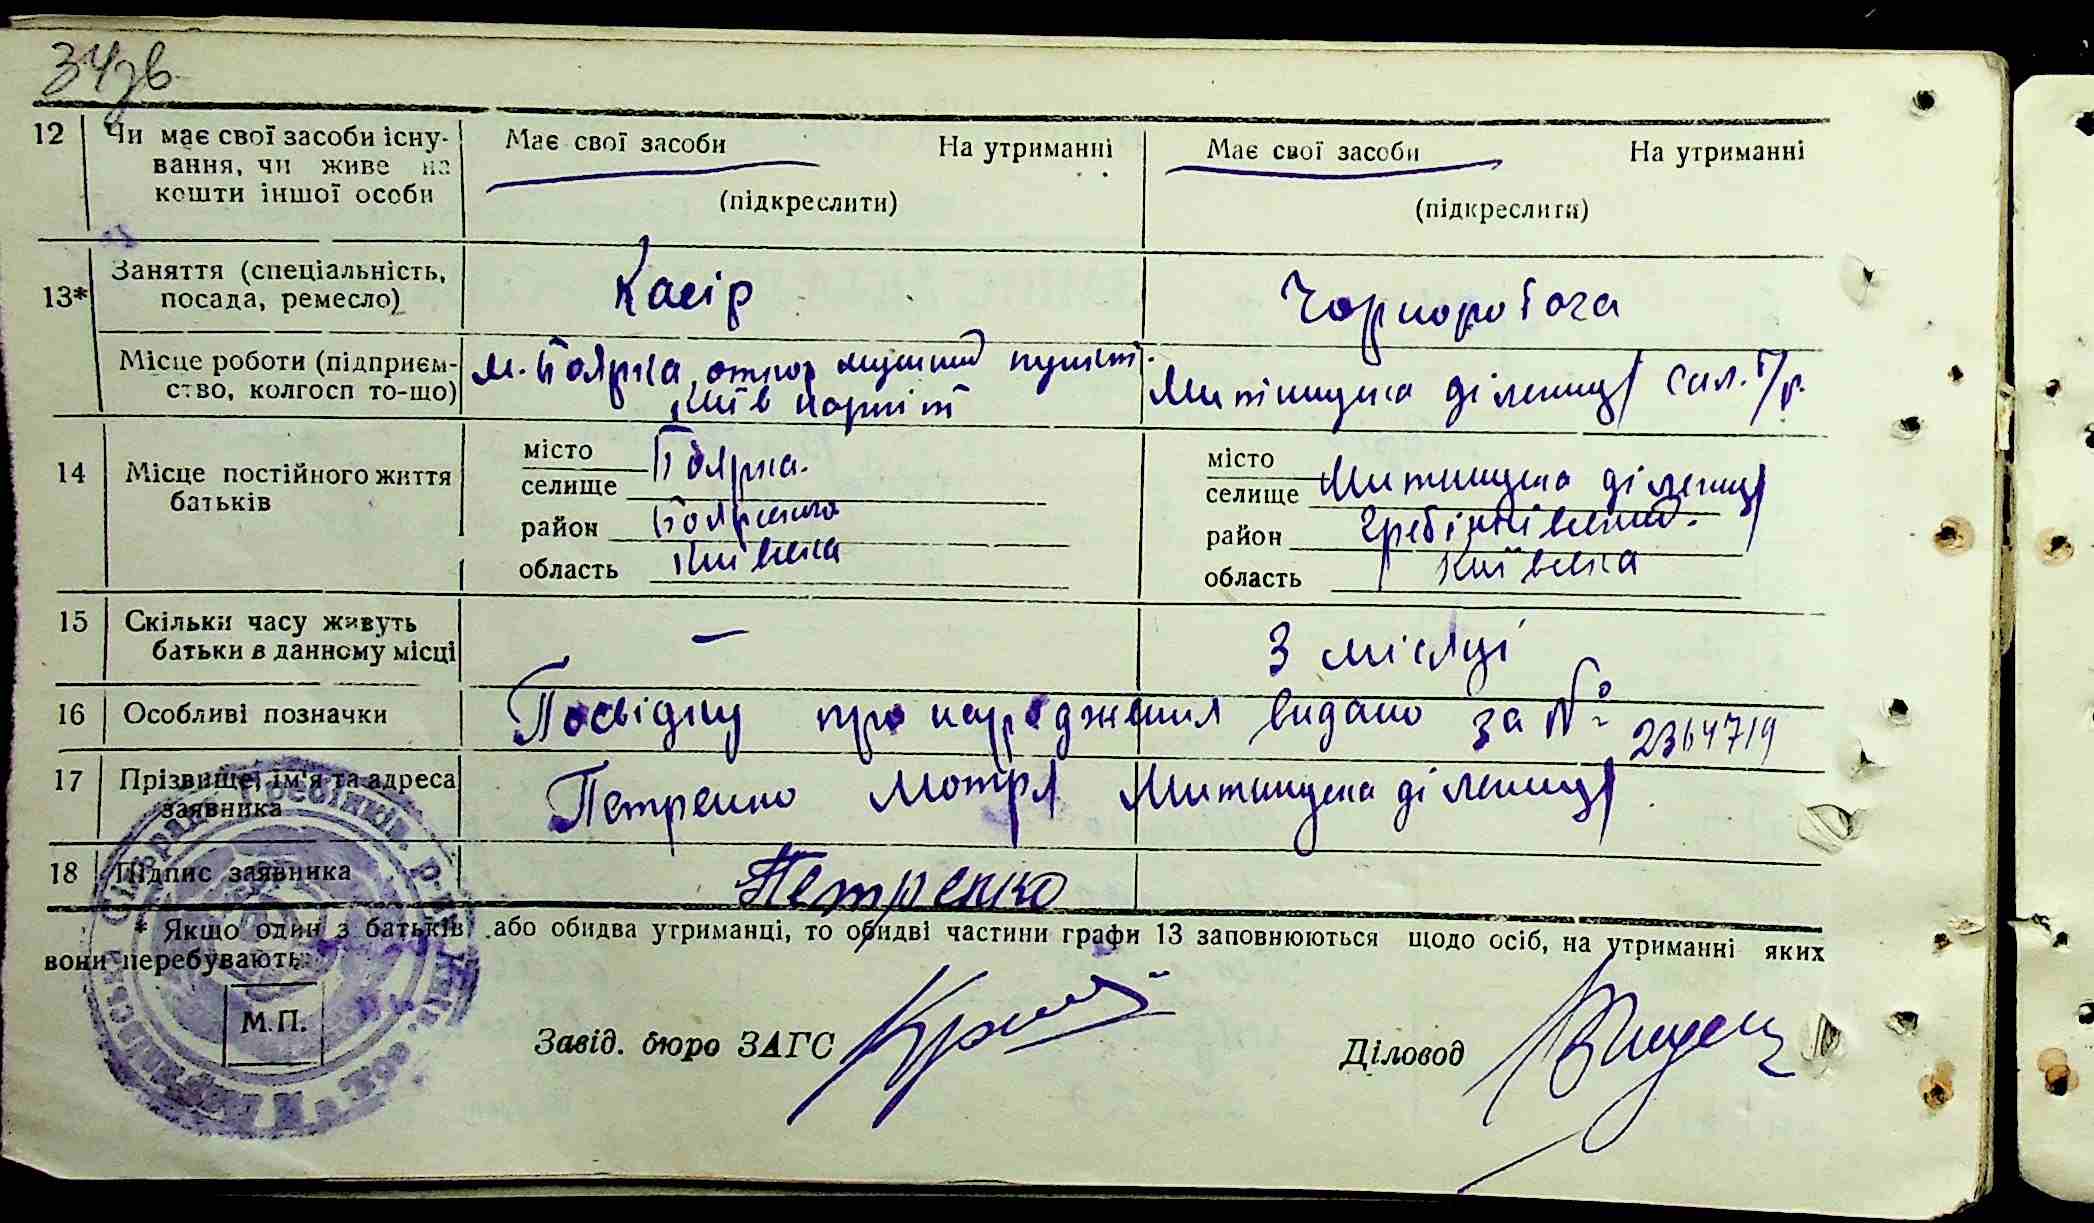 34зв
12 Чи має свої засоби існу- Має свої засоби На утриманні Має свої засоби На утриманні
вання, чи живе на
кошти іншої особи (підкреслити) (підкреслити)
13* Заняття (спеціальність, Касір Чорноробоча
посада, ремесло)
Місце роботи (підприєм- м. Боярка, пункт Митницька дільниця
ство, колгосп то-що)
14 Місце постійного життя місто Боярка місто Митницька дільниця
батьків селище селище
район Боярського район Гребінківський
область Київська область Київська
15 Скільки часу живуть — 3 місяці
батьки в данному місці
16 Особливі позначки Посвідку про народження видано за № 2364719
17 Прізвище, ім'я та адреса Петренко Мотря Митницька дільниця
заявника
18 Підпис заявника Петренко
* Якщо один з батьків або обидва утриманці, то обидві частини графи 13 заповнюються щодо осіб, на утриманні яких
вони перебувають.
М.П.
Завід. бюро ЗАГС Діловод